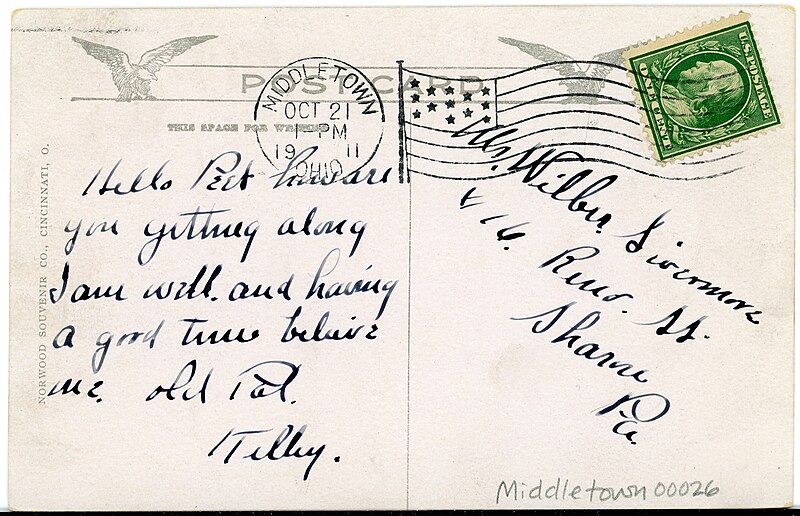 POST CARD
THIS SPACE FOR WRITING
MIDDLETOWN
OCT 21
1 - PM
19 11
OHIO
U.S. POSTAGE
ONE CENT
Hello Pert howare
you getting along
I am well. and having
a good time believe
me. old Pal.
Mr. Wilber
416. Reno. St.
Sharon
Pa.
NORWOOD SOUVENIR CO., CINCINNATI, O.
Middletown 00026